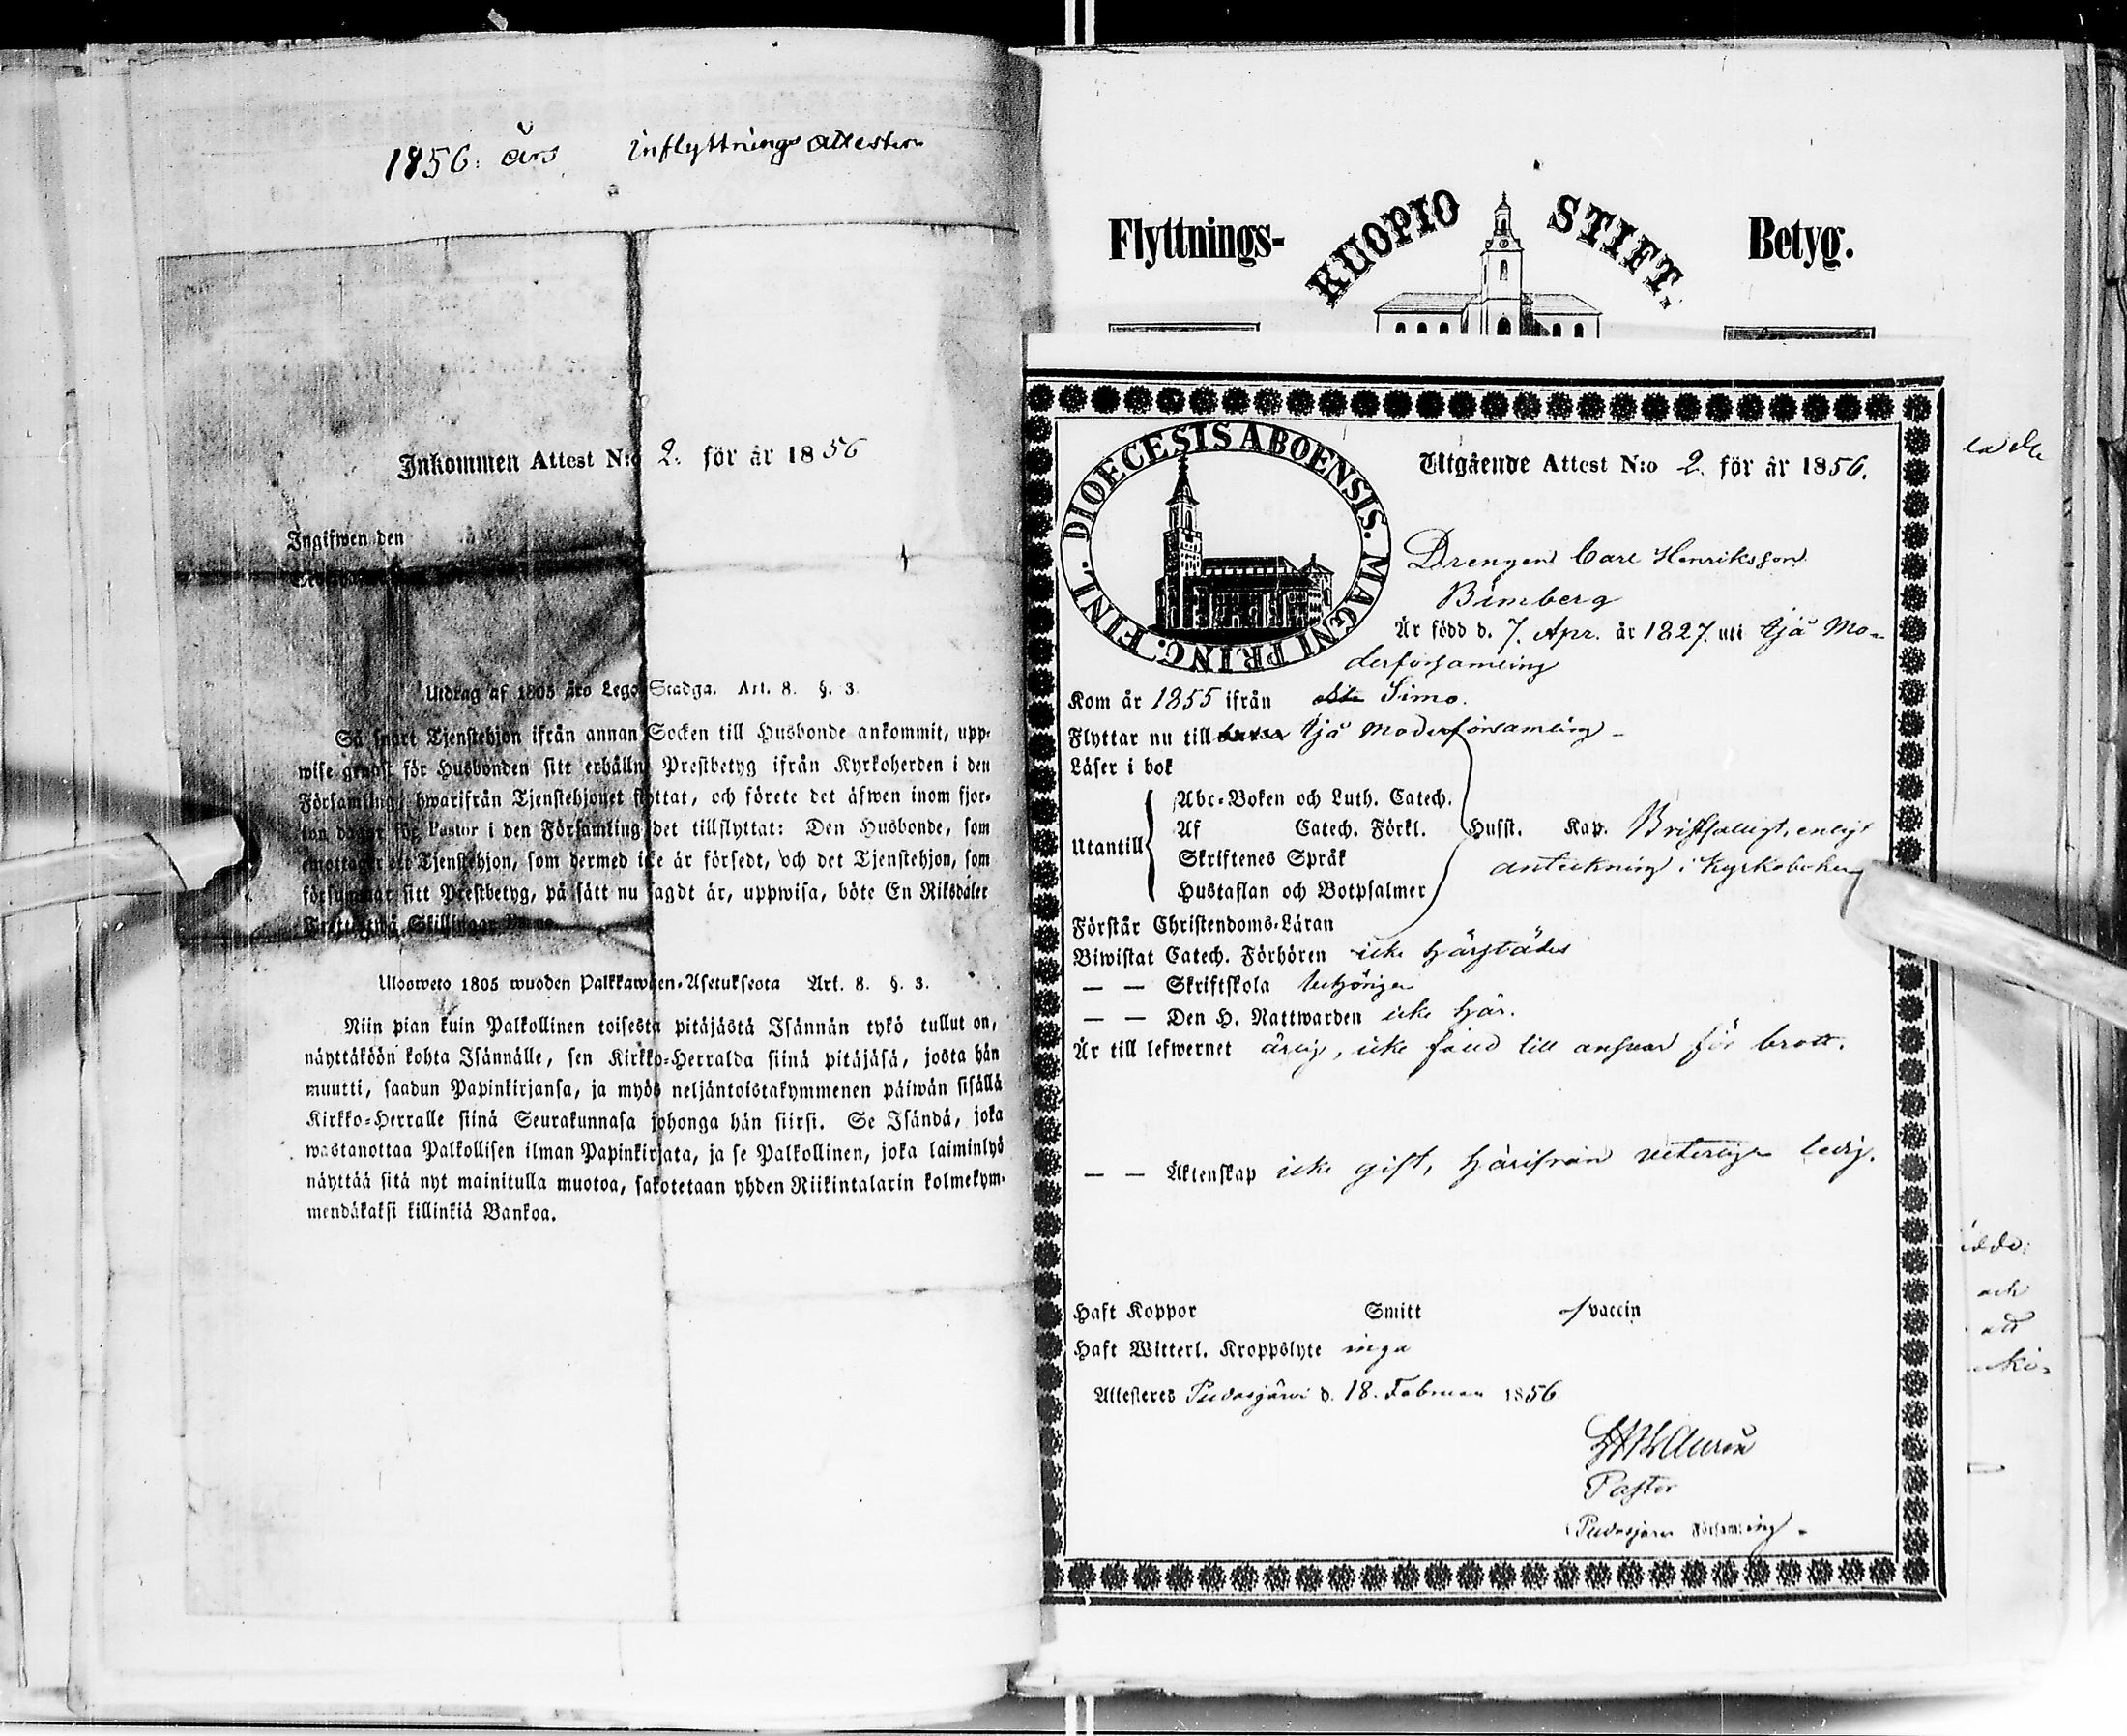 1856. års inflyttnings attester
Inkommen Attest N:o 2. för år 1856
Ingifwen den
Utdrag af 1805 års Lego Stadga. Art. 8. §. 3.
Så snart Tjenstehjon ifrån annan Socken till Husbonde ankommit, upp-
wise genast för Husbonden sitt erhållna Prestbetyg ifrån Kyrkoherden i den
Församling, hwarifrån Tjenstehjonet flyttat, och förete det äfwen inom fjor-
ton dagar för Pastor i den Församling det tillflyttat: Den Husbonde, som
emottager ett Tjenstehjon, som dermed icke är försedt, och det Tjenstehjon, som
försummar sitt Prestbetyg, på sätt nu sagdt är, uppwisa, böte En Riksdaler
Trettiotwå Skillingar Banco.
Ulosweto 1805 wuoden Palkkawäen-Asetuksesta Art. 8. §. 3.
Niin pian kuin Palkollinen toisesta pitäjästä Isännän tykö tullut on,
näyttäköön kohta Isännälle, sen Kirkko-Herralda siinä pitäjäsä, josta hän
muutti, saadun Papinkirjansa, ja myös neljäntoistakymmenen päiwän sisällä
Kirkko-Herralle siinä Seurakunnasa johonga hän siirsi. Se Isändä, joka
wastanottaa Palkollisen ilman Papinkirjata, ja se Palkollinen, joka laiminlyö
näyttää sitä nyt mainitulla muotoa, sakotetaan yhden Riikintalarin kolmekym-
mendäkaksi killinkiä Bankoa.
Flyttnings- KUOPIO STIFT. Betyg.
DIOECESIS ABOENSIS. MAGNI PRINC. FINL.
Utgående Attest N:o 2. för år 1856.
Drengen Carl Henriksson
Bimberg
Är född d. 7. Apr. år 1827. uti Ijå Mo-
derförsamling
Kom år 1855 ifrån Simo.
Flyttar nu till Ijå Moderförsamling
Läser i bok
Utantill
Abc-Boken och Luth. Catech.
Af Catech. Förkl. Hufst. Kap. Bristfälligt, enligt
Skriftenes Språk anteckning i Kyrkoboken
Hustaflan och Botpsalmer
Förstår Christendoms-Läran
Biwistat Catech. Förhören icke härstädes
— — Skriftskola behörigen
— — Den H. Nattwarden icke här.
Är till lefwernet ärlig, icke fälld till answar för brott.
— — Äktenskap icke gift, härifrån veterligen ledig.
Haft Koppor Smitt vaccin
Haft Witterl. Kroppslyte inga
Attesteres Pudasjärvi d. 18. Februari 1856
Pastor
Pudasjärvi Församling
och
att